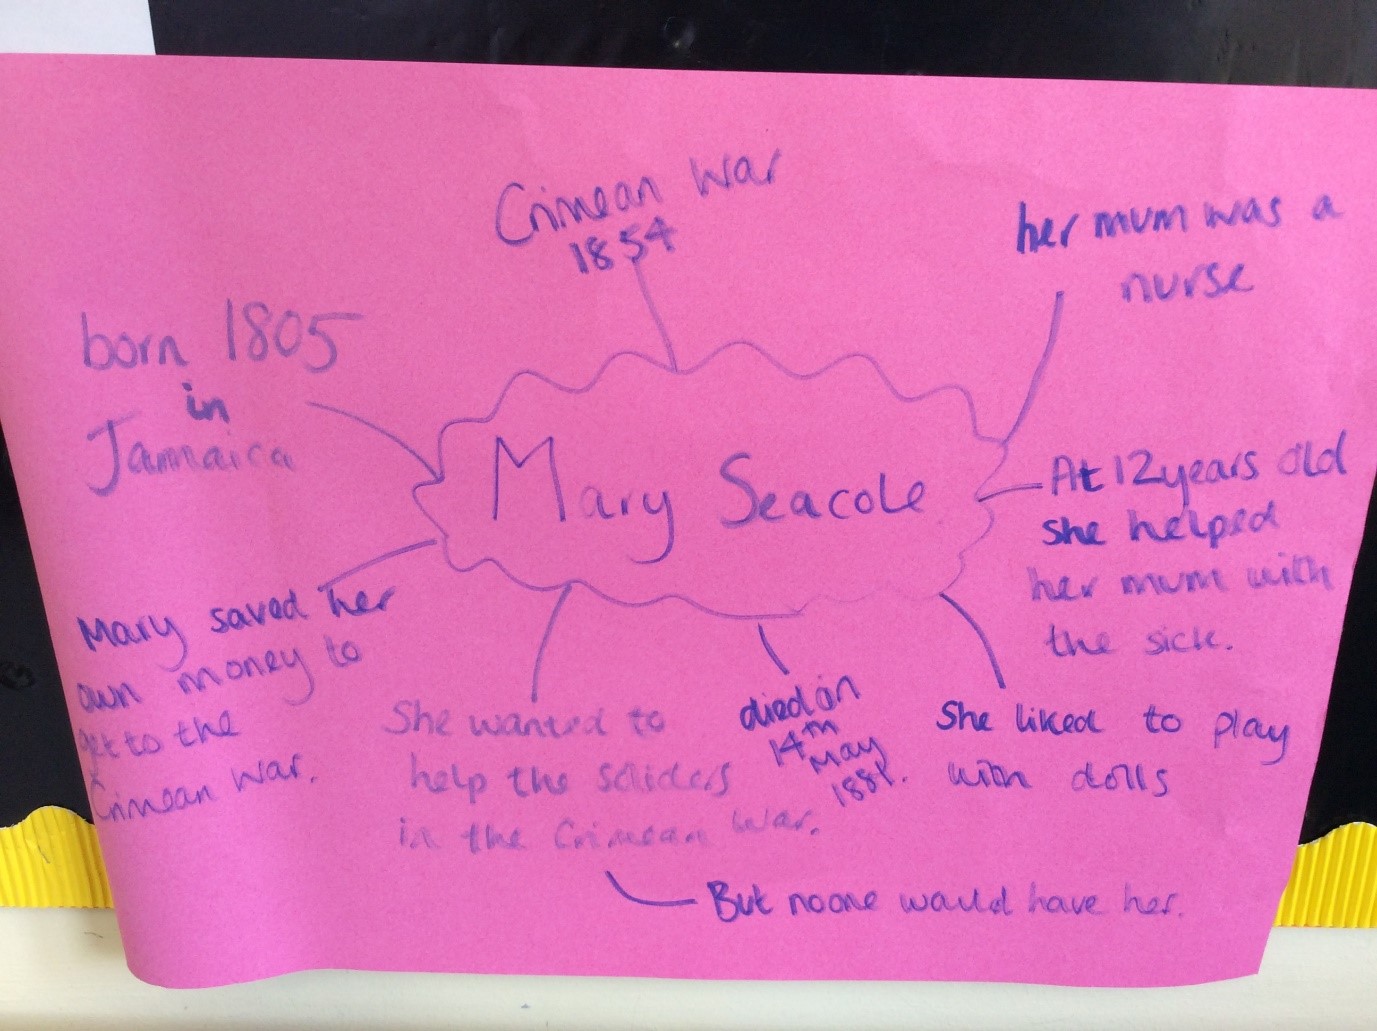 Crimean War
1854
her mum was a
nurse
born 1805
in
Jamaica
Mary Seacole
At 12 years old
she helped
her mum with
the sick.
Mary saved her
own money to
get to the
Crimean War.
She wanted to
help the soliders
in the Crimean War.
died on
14th
May
1881.
She liked to play
with dolls
But noone would have her.